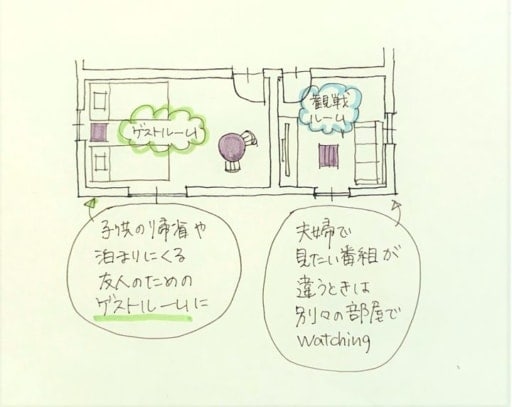 ゲストルーム
観戦
ルーム
子供の帰省や
泊まりにくる
友人のための
ゲストルームに
夫婦で
見たい番組が
違うときは
別々の部屋で
Watching